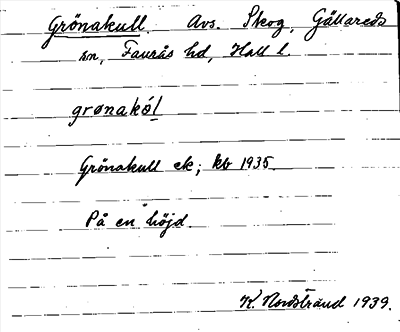 Grönakull. Avs. Skog, Gällareds
sn, Faurås hd, Hall l.
grønakól
Grönakull ek; kb 1935.
På en höjd.
K. Nordstrand 1939.